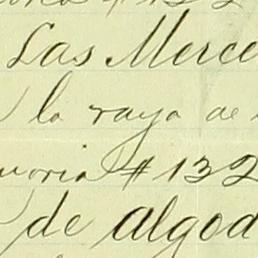 # 132
Las Merce
la raya de
moria # 132
de algod